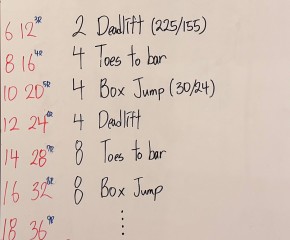 6 12 3R 2 Deadlift (225/155)
8 16 4R 4 Toes to bar
10 20 5R 4 Box Jump (30/24)
12 24 4 Deadlift
14 28 8 Toes to bar
16 32 8 Box Jump
18 36